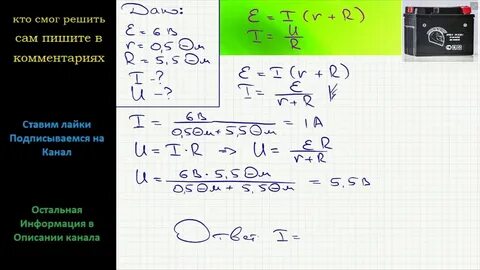 кто смог решить
сам пишите в
комментариях
Ставим лайки
Подписываемся на
Канал
Остальная
Информация в
Описании канала
Дано:
ℰ = 6 В
r = 0,5 Ом
R = 5,5 Ом
I - ?
U - ?
ℰ = I (r + R)
I = U/R
ℰ = I (r + R)
I = ℰ/(r + R)
I = 6В/(0,5Ом + 5,5Ом) = 1А
U = I·R ⇒ U = ℰR/(r + R)
U = 6В · 5,5Ом/(0,5Ом + 5,5Ом) = 5,5В
Ответ I =